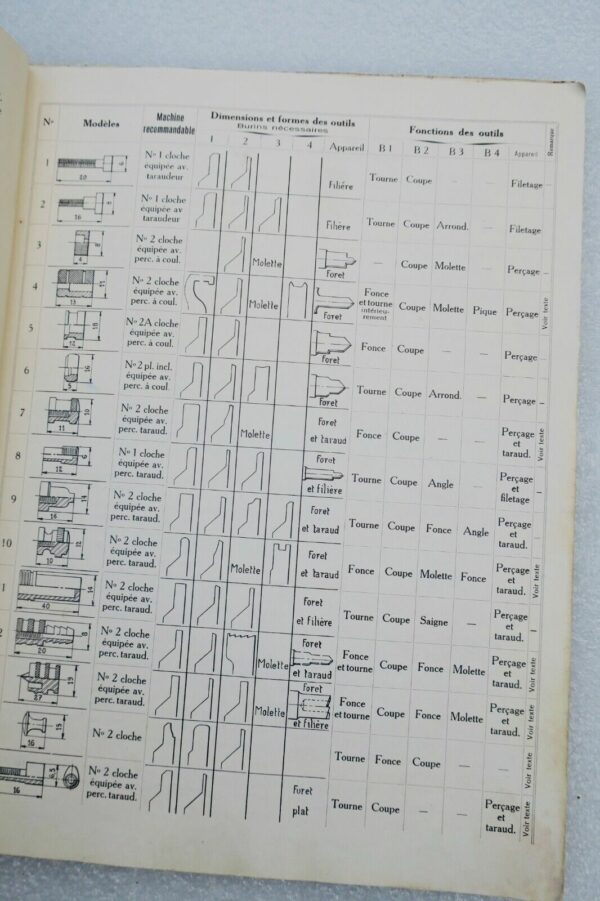 Nº Modèles Machine recommandable Dimensions et formes des outils Fonctions des outils Remarque
Burins nécessaires
1 2 3 4 Appareil B 1 B 2 B 3 B 4 Appareil
1 20 6 Nº 1 cloche équipée av. taraudeur Filière Tourne Coupe — — Filetage —
2 16 8 Nº 1 cloche équipée av. taraudeur Filière Tourne Coupe Arrond. — Filetage
3 4 8 Nº 2 cloche équipée av. perc. à coul. Molette Foret — Coupe Molette — Perçage —
4 13 11 Nº 2 cloche équipée av. perc. à coul. Molette Foret Fonce et tourne intérieurement Coupe Molette Pique Perçage Voir texte
5 12 18 Nº 2A cloche équipée av. perc. à coul. Foret Fonce Coupe — — Perçage —
6 5 16 Nº 2 pl. incl. équipée av. perc. à coul. Foret Tourne Coupe Arrond. — Perçage —
7 11 10 Nº 2 cloche équipée av. perc. taraud. Molette Foret et taraud Fonce Coupe — — Perçage et taraud. Voir texte
8 12 6 Nº 1 cloche équipée av. perc. taraud. Foret et filière Tourne Coupe Angle — Perçage et filetage —
9 16 14 Nº 2 cloche équipée av. perc. taraud. Foret et taraud Tourne Coupe Fonce Angle Perçage et taraud. —
10 10 12 Nº 2 cloche équipée av. perc. taraud. Molette Foret et taraud Fonce Coupe Molette Fonce Perçage et taraud. Voir texte
1 40 14 Nº 2 cloche équipée av. perc. taraud. Foret et filière Tourne Coupe Saigne — Perçage et taraud. —
2 20 8 Nº 2 cloche équipée av. perc. taraud. Molette Foret et taraud Fonce et tourne Coupe Fonce Molette Perçage et taraud. Voir texte
27 19 Nº 2 cloche équipée av. perc. taraud. Molette Foret et filière Fonce et tourne Coupe Fonce Molette Perçage et taraud. Voir texte
16 15 Nº 2 cloche Tourne Fonce Coupe — — Voir texte
16 6,5 Nº 2 cloche équipée av. perc. taraud. Foret plat Tourne Coupe — — Perçage et taraud. Voir texte